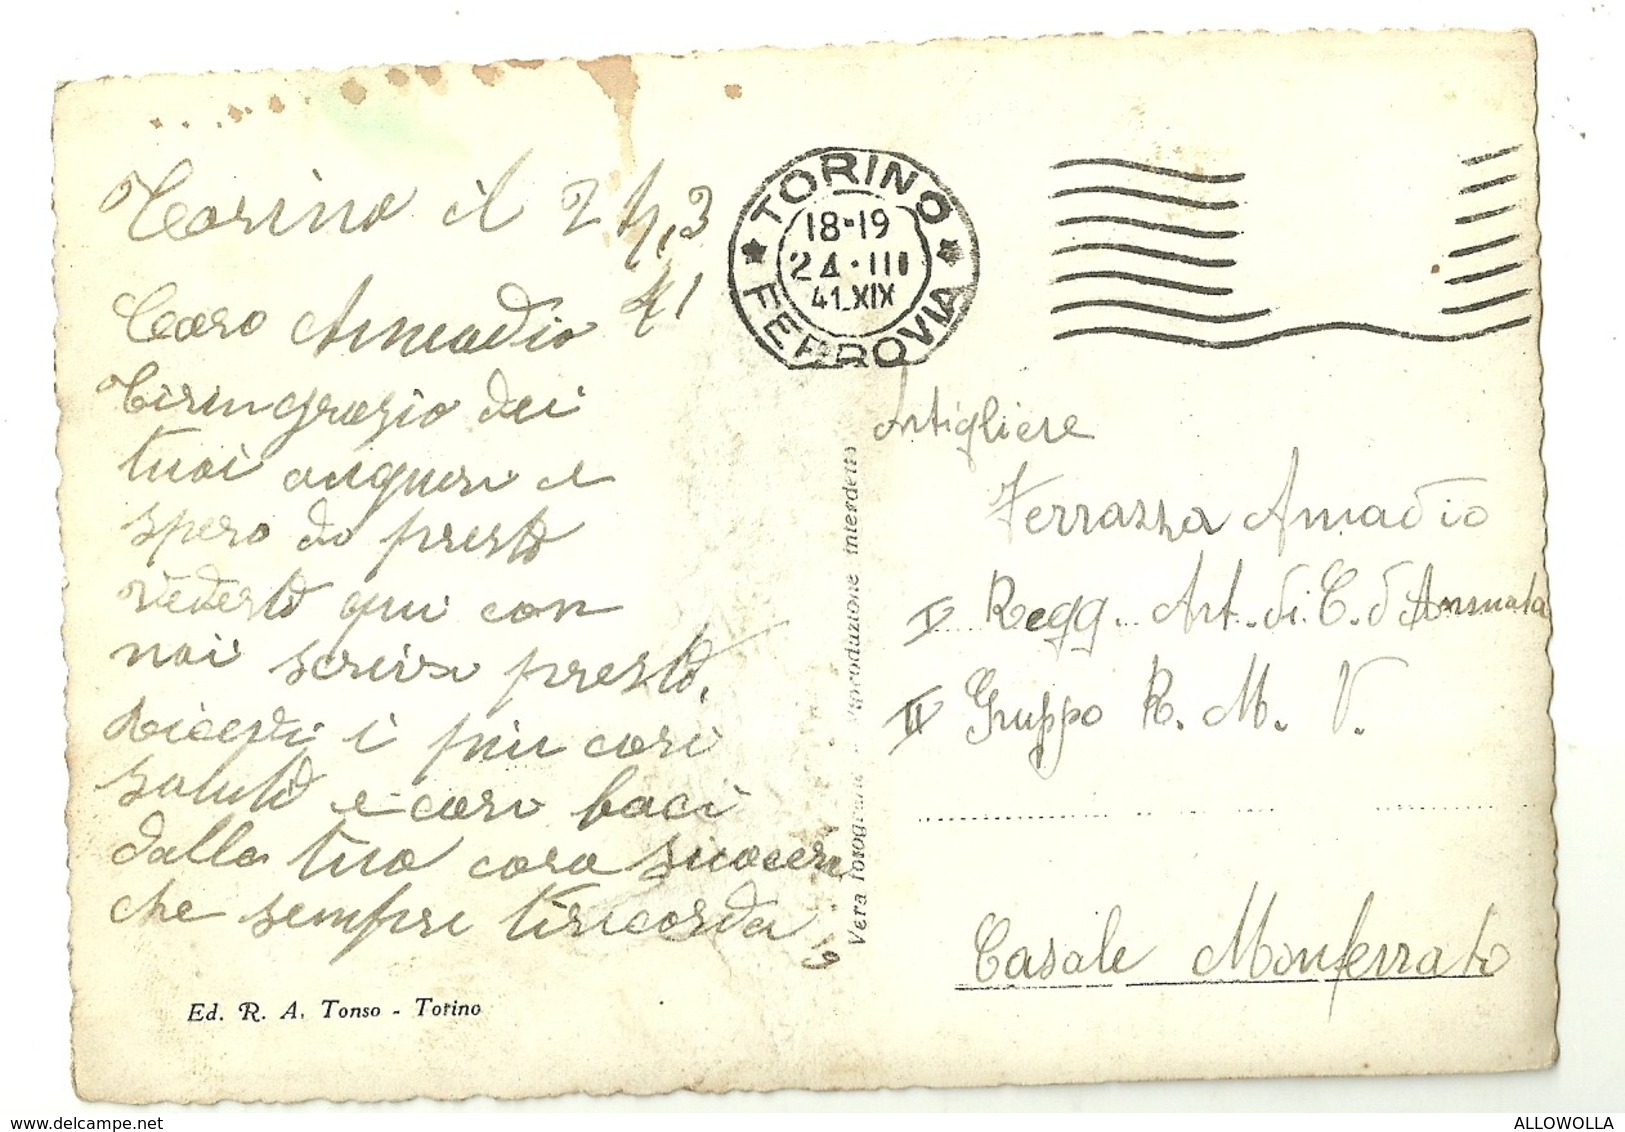 Torino il 24,3
41
Caro Amadio
Tiringrazio dei
tuoi auguri e
spero di presto
vederti qui con
noi scrivi presto.
Ricevi i più cari
saluti e cari baci
dalla tua cara suocera
che sempre tiricorda
Ed. R. A. Tonso - Torino
Vera fotografia - Riproduzione interdetta
TORINO
FERROVIA
18-19
24·III
41.XIX
Artigliere
Terrazza Amadio
V Regg. Art. di C. d'Armata
II Gruppo R. M. V.
Casale Monferrato
www.delcampe.net
ALLOWOLLA